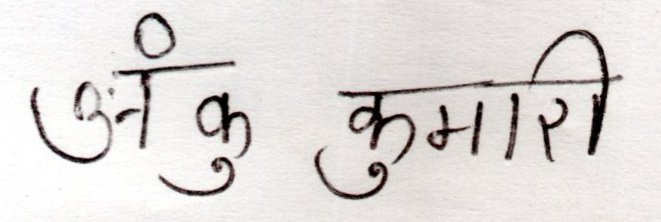 अंकु कुमारी